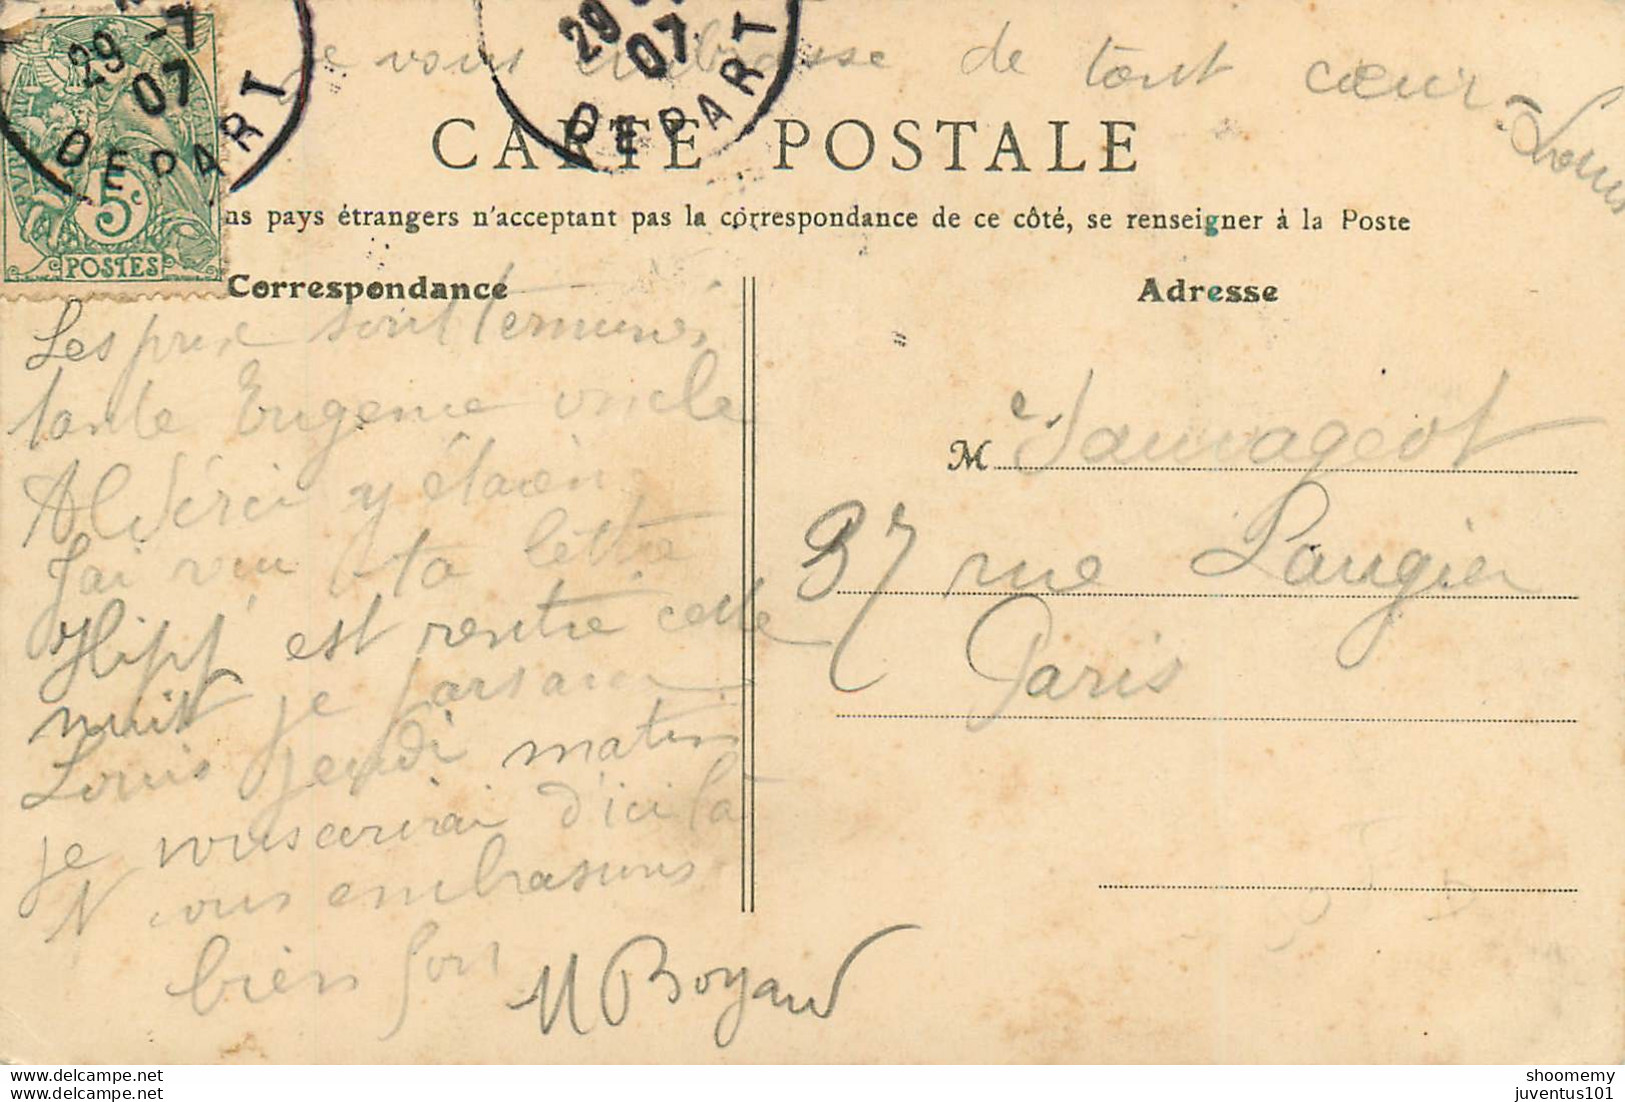 29 -7
07
DEPART
5c
POSTES
29
07
DEPART
Je vous embrasse de tout cœur - Louis
CARTE POSTALE
ns pays étrangers n'acceptant pas la correspondance de ce côté, se renseigner à la Poste
Correspondance
Les prix sont terminés
tante Eugenie oncle
y étaien
J'ai reçu ta lettre
Hipp est rentré cette
nuit je
Louis jeudi matin
je vous écrirai d'ici là
Nous embrassons
bien fort
M Boyard
Adresse
M Sauvageot
37 rue Laugier
Paris
www.delcampe.net
shoomemy
juventus101